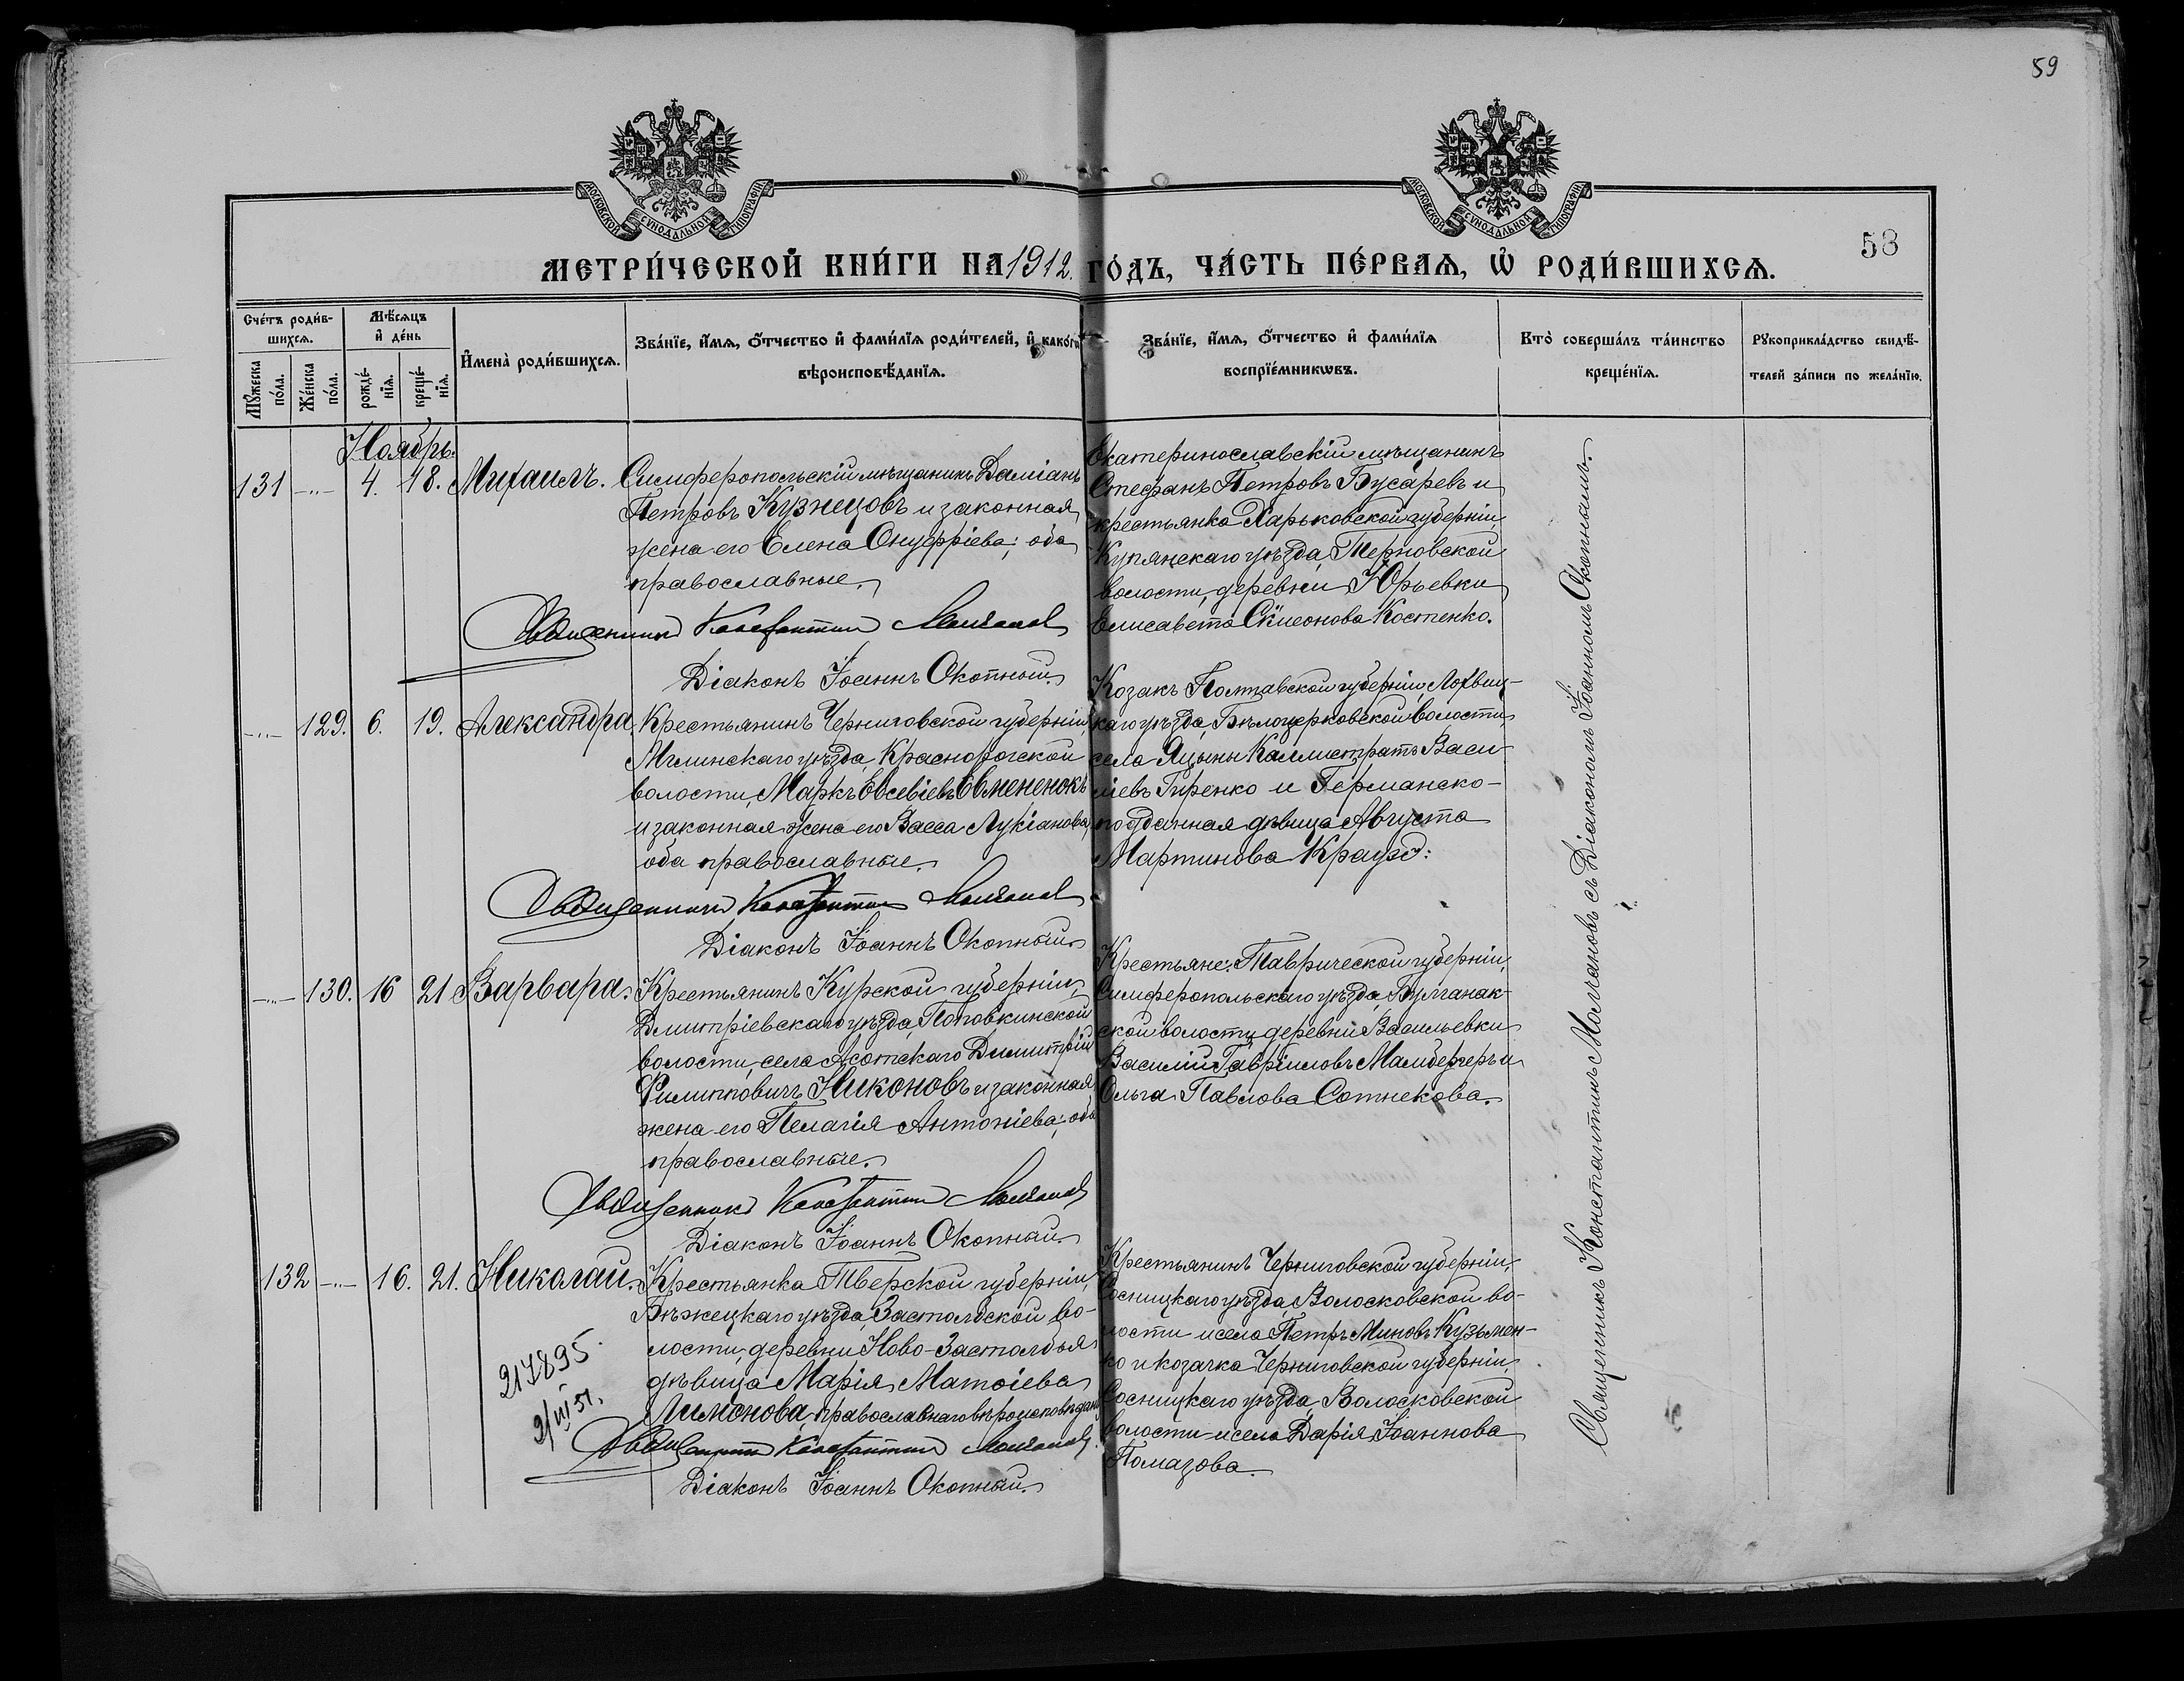 59
МОСКОВСКОЙ СѴНОДАЛЬНОЙ ТИПОГРАФІИ
МОСКОВСКОЙ СѴНОДАЛЬНОЙ ТИПОГРАФІИ
58
МЕТРИ́ЧЕСКОЙ КНИ́ГИ НА 1912. ГО́ДЪ, ЧА́СТЬ ПЕ́РВАѦ, Ѡ҆ РОДИ́ВШИХСѦ.
Сче́тъ роди́в-
шихсѧ.
Мꙋ́жеска
по́ла.
Же́нска
по́ла.
Мѣ́сѧцъ
и҆ де́нь
рожде́-
нїѧ.
креще́-
нїѧ.
И҆мена̀ роди́вшихсѧ.
Зва́нїе, и҆́мѧ, ѻ҆́тчество и҆ фами́лїѧ роди́телей, и҆ како́гѡ
вѣроисповѣ́данїѧ.
Зва́нїе, и҆́мѧ, ѻ҆́тчество и҆ фами́лїѧ
воспрїе́мникѡвъ.
Кто̀ соверша́лъ та́инство
креще́нїѧ.
Рꙋкоприкла́дство свидѣ́-
телей за́писи по жела́нїю.
Ноябрь.
131 -„- 4. 18. Михаилъ.
Симферопольскій мѣщанинъ Даміанъ
Петровъ Кузнецовъ и законная
жена его Елена Онуфріева; оба
православные.
Священникъ Константинъ Молчановъ
Діаконъ Іоаннъ Окопный.
Екатеринославскій мѣщанинъ
Стефанъ Петровъ Бусаревъ и
крестьянка Харьковской губерніи,
Купянскаго уѣзда, Терновской
волости, деревни Юрьевки
Елисавета Сѵмеонова Костенко.
-„- 129. 6. 19. Александра
Крестьянинъ Черниговской губерніи,
Мглинскаго уѣзда, Краснорогской
волости, Маркъ Евсевіевъ Евмененокъ
и законная жена его Васса Лукіанова,
оба православные.
Священникъ Константинъ Молчановъ
Діаконъ Іоаннъ Окопный.
Козакъ Полтавской губерніи, Лохвиц-
каго уѣзда, Бѣлоцерковской волости
села Яцыны Каллистратъ Васи-
ліевъ Гиренко и Германско-
подданная дѣвица Августа
Мартинова Краузэ:
-„- 130. 16 21 Варвара.
Крестьянинъ Курской губерніи,
Дмитріевскаго уѣзда, Поповкинской
волости, села Асотскаго Димитрій
Филипповичъ Никоновъ и законная
жена его Пелагія Антоніева; оба
православные.
Священникъ Константинъ Молчановъ
Діаконъ Іоаннъ Окопный.
Крестьяне: Таврической губерніи,
Симферопольскаго уѣзда, Булганак-
ской волости, деревни Васильевки
Василій Гавріиловъ Мамбержеръ и
Ольга Павлова Сотнекова.
132 -„- 16. 21. Николай.
Крестьянка Тверской губерніи,
Бѣжецкаго уѣзда, Застолбской во-
лости, деревни Ново-Застолбья
дѣвица Марія Матѳіева
Лимонова, православнаго вѣроисповѣдан.
Священникъ Константинъ Молчановъ.
Діаконъ Іоаннъ Окопный.
217895.
2/VI 51.
Крестьянинъ Черниговской губерніи,
Сосницкаго уѣзда, Волосковской во-
лости и села Петръ Миновъ Кузьмен-
ко и козачка Черниговской губерніи,
Сосницкаго уѣзда, Волосковской
волости и села Дарія Іоаннова
Помазова.
Священникъ Константинъ Молчановъ съ Діакономъ Іоанномъ Окопнымъ.